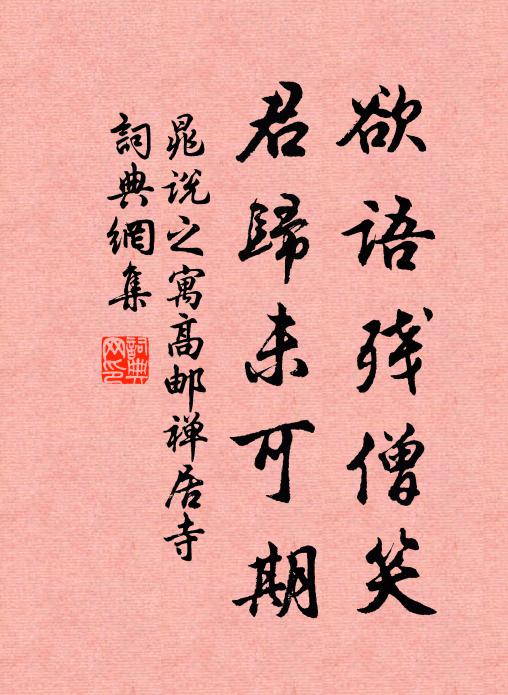 欲语残僧笑
君歸未可期
晁说之寓高邮禅居寺
詞典網集
詞典网印